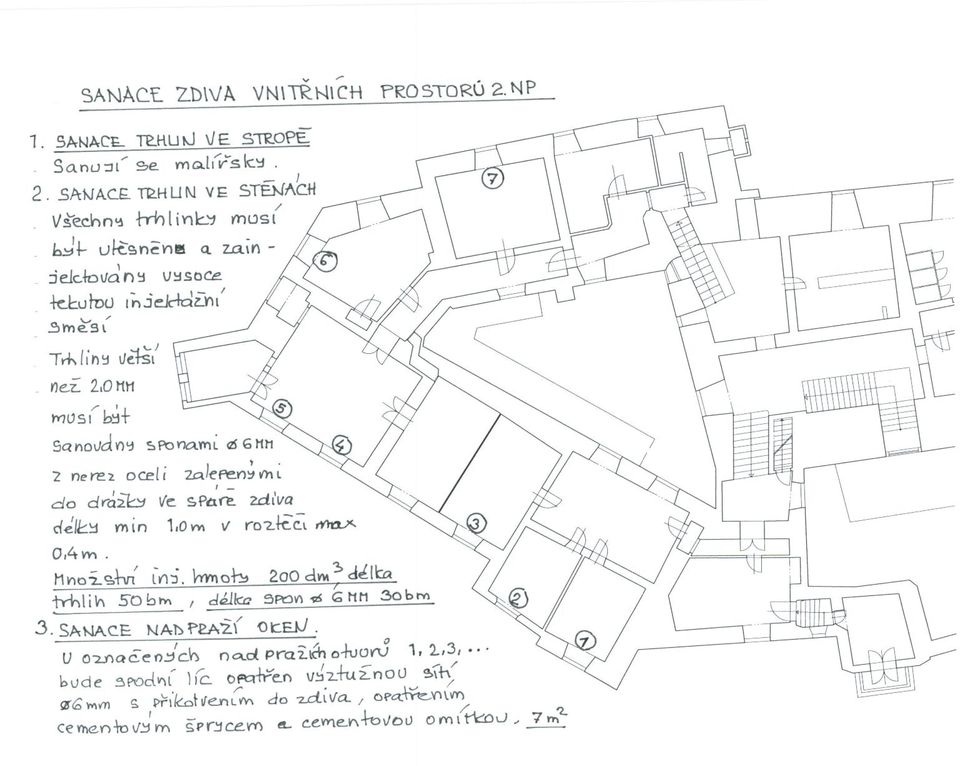 SANACE ZDIVA VNITŘNÍCH PROSTORŮ 2.NP
1. SANACE TRHLIN VE STROPĚ
Sanují se malířsky.
2. SANACE TRHLIN VE STĚNÁCH
Všechny trhlinky musí
být utěsněne a zain-
jektovány vysoce
tekutou injektážní
směsí
Trhliny větší
než 2,0 MM
musí být
sanovány sponami ø 6 MM
z nerez oceli zalepenými
do drážky ve spáře zdiva
délky min 1,0 m v roztěči max
0,4 m.
Množství inj. hmoty 200 dm³ délka
trhlin 50 bm, délka SPON ø 6 MM 30 bm
3. SANACE NADPRAŽÍ OKEN.
U označených nadpražích otvorů 1, 2, 3, ...
bude spodní líc opatřen výztužnou sítí
ø6mm s přikotvením do zdiva, opatřením
cementovým šprycem a cementovou omítkou. 7 m²
7
6
5
4
3
2
1